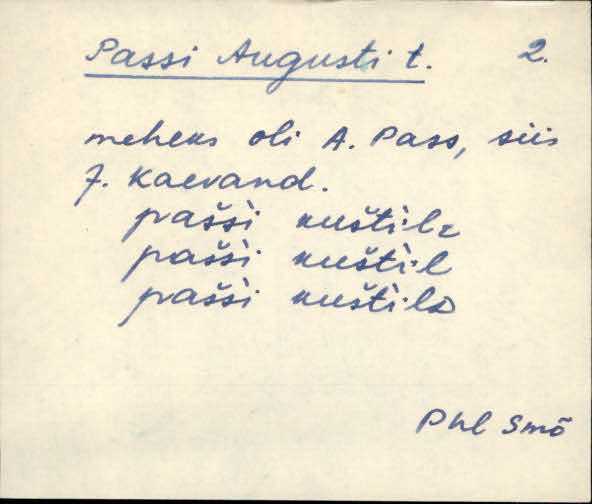 Passi Augusti t. 2.
meheks oli A. Pass, siis
J. Kaevand.
pašši kuštile
pašši kuštil
pašši kuštilo
Phl Smõ